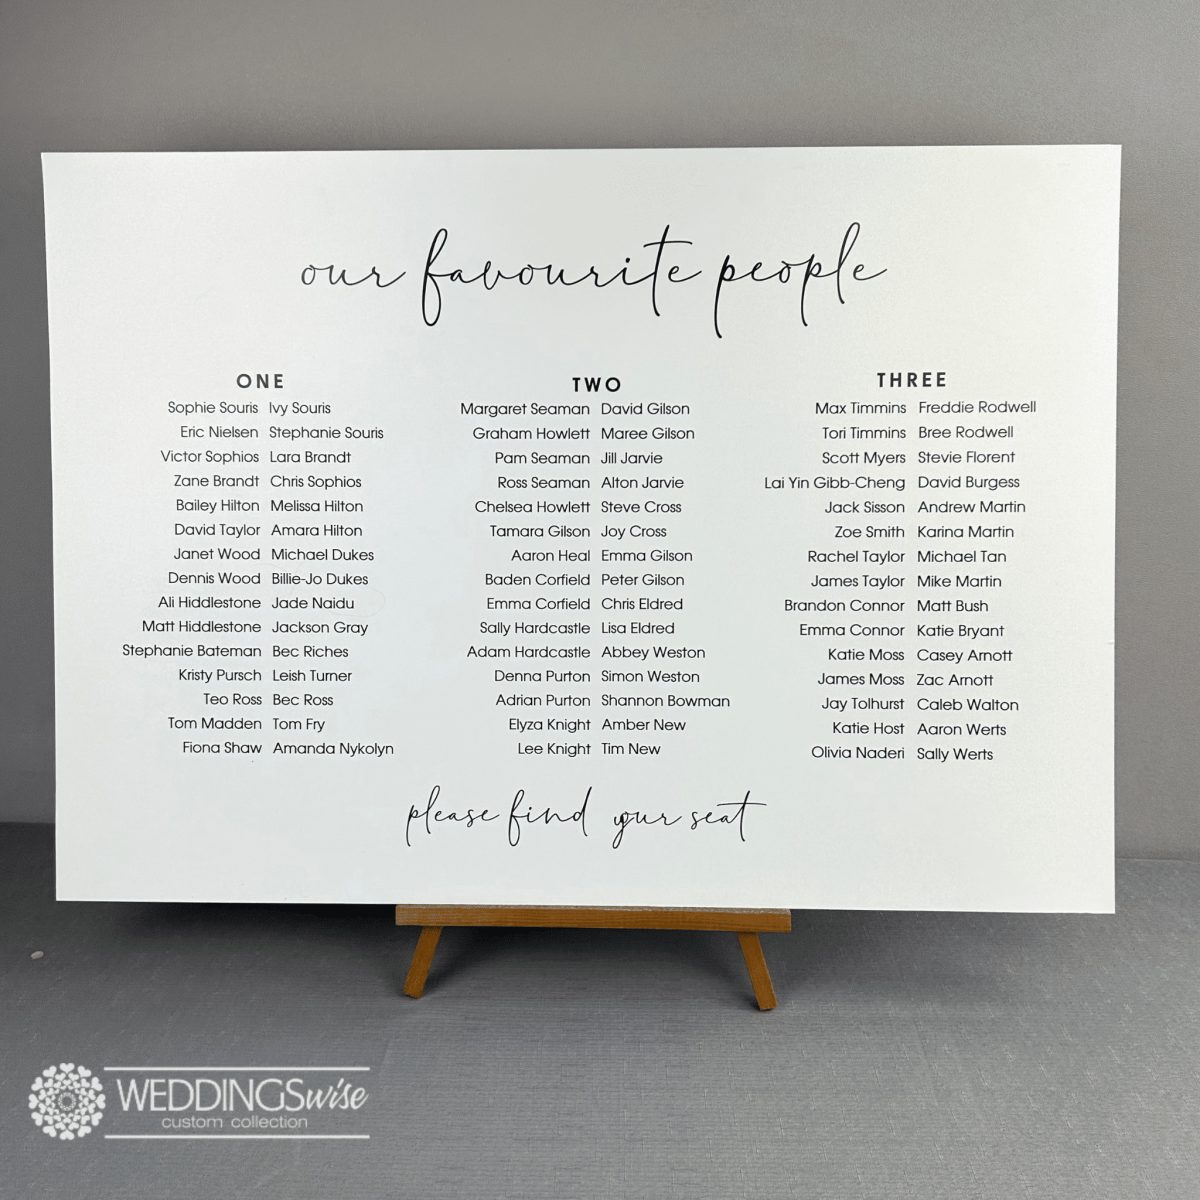 our favourite people
ONE
Sophie Souris Ivy Souris
Eric Nielsen Stephanie Souris
Victor Sophios Lara Brandt
Zane Brandt Chris Sophios
Bailey Hilton Melissa Hilton
David Taylor Amara Hilton
Janet Wood Michael Dukes
Dennis Wood Billie-Jo Dukes
Ali Hiddlestone Jade Naidu
Matt Hiddlestone Jackson Gray
Stephanie Bateman Bec Riches
Kristy Pursch Leish Turner
Teo Ross Bec Ross
Tom Madden Tom Fry
Fiona Shaw Amanda Nykolyn
TWO
Margaret Seaman David Gilson
Graham Howlett Maree Gilson
Pam Seaman Jill Jarvie
Ross Seaman Alton Jarvie
Chelsea Howlett Steve Cross
Tamara Gilson Joy Cross
Aaron Heal Emma Gilson
Baden Corfield Peter Gilson
Emma Corfield Chris Eldred
Sally Hardcastle Lisa Eldred
Adam Hardcastle Abbey Weston
Denna Purton Simon Weston
Adrian Purton Shannon Bowman
Elyza Knight Amber New
Lee Knight Tim New
THREE
Max Timmins Freddie Rodwell
Tori Timmins Bree Rodwell
Scott Myers Stevie Florent
Lai Yin Gibb-Cheng David Burgess
Jack Sisson Andrew Martin
Zoe Smith Karina Martin
Rachel Taylor Michael Tan
James Taylor Mike Martin
Brandon Connor Matt Bush
Emma Connor Katie Bryant
Katie Moss Casey Arnott
James Moss Zac Arnott
Jay Tolhurst Caleb Walton
Katie Host Aaron Werts
Olivia Naderi Sally Werts
please find your seat
WEDDINGSwise
custom collection